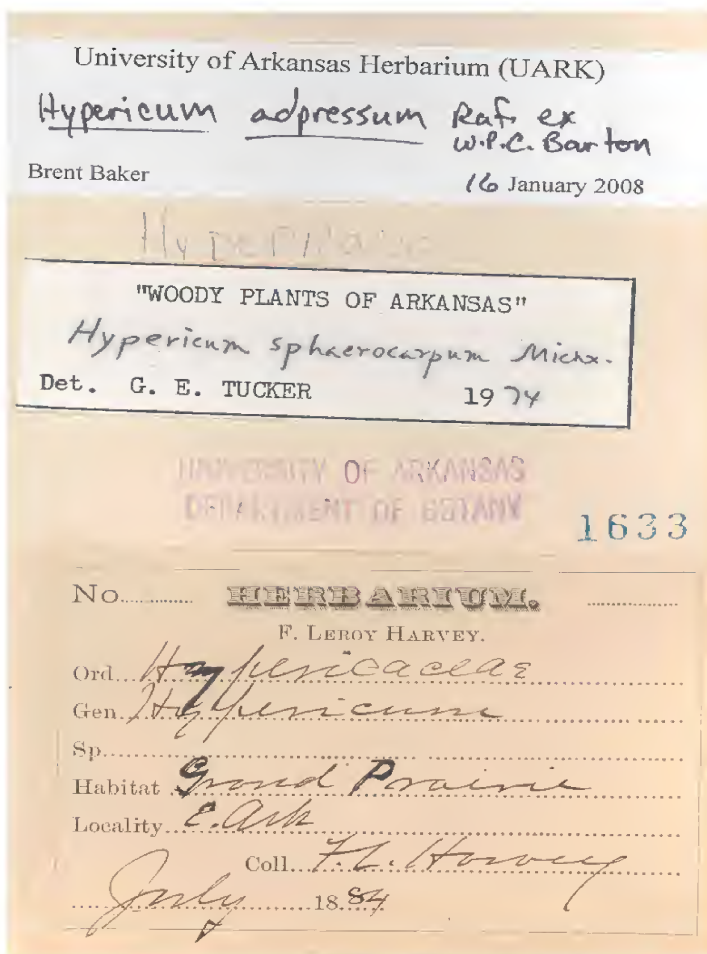 University of Arkansas Herbarium (UARK)
Hypericum adpressum Raf. ex
W.P.C. Barton
Brent Baker 16 January 2008
"WOODY PLANTS OF ARKANSAS"
Hypericum sphaerocarpum Michx.
Det. G. E. TUCKER 1974
UNIVERSITY OF ARKANSAS
DEPARTMENT OF BOTANY
1633
No. HERBARIUM.
F. LEROY HARVEY.
Ord. Hypericaceae
Gen. Hypericum
Sp.
Habitat Grand Prairie
Locality E. Ark
Coll. F. L. Harvey
July 1884